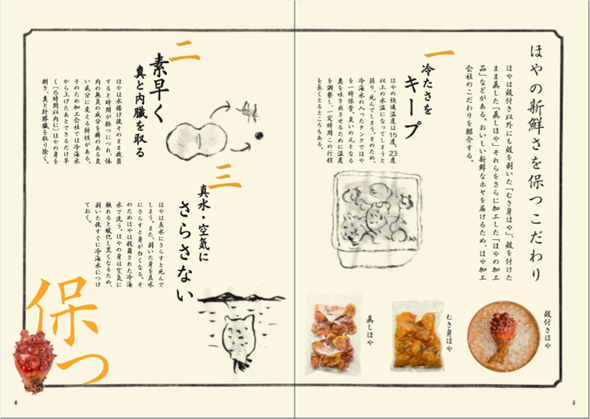 ほやの新鮮さを保つこだわり
ほやは殻付き以外にも殻を剥いた「むき身ほや」、殻を付けた
まま蒸した「蒸しほや」それらをさらに加工した「ほやの加工
品」などがある。おいしい新鮮なホヤを届けるため、ほや加工
会社のこだわりを紹介する。
殻付きほや
むき身ほや
蒸しほや
一
冷たさを
キープ
ほやの快適温度は15度、23度
以上の水温になってしまうと
弱り、死んでしまう。そのため、
冷海水の入ったタンクでほや
を一時保管。臭いの元となる
真を吐き出させるために温度
を調整し、一定時間この行程
を長くとるところもある。
5
二
素早く
真と内臓を取る
ほやは水揚げ後そのまま放置
すると時間が経つにつれ、体
内の無臭の成分を癖のある臭
い成分に変える特性がある。
そのため加工会社では冷海水
から上げたあとできるだけ早
く(6時間以内に)ほやの身を
捌き、真と肝膵臓を取り除く。
三
真水・空気に
さらさない
ほやは真水にさらすと死んで
しまう。また、剥いた身を真水
にさらすと身が白くなる。そ
のためほやは殺菌された冷海
水で洗う。ほやの身は空気に
触れると酸化し黒くなるため、
剥いた後すぐに冷海水につけ
ておく。
保つ
6